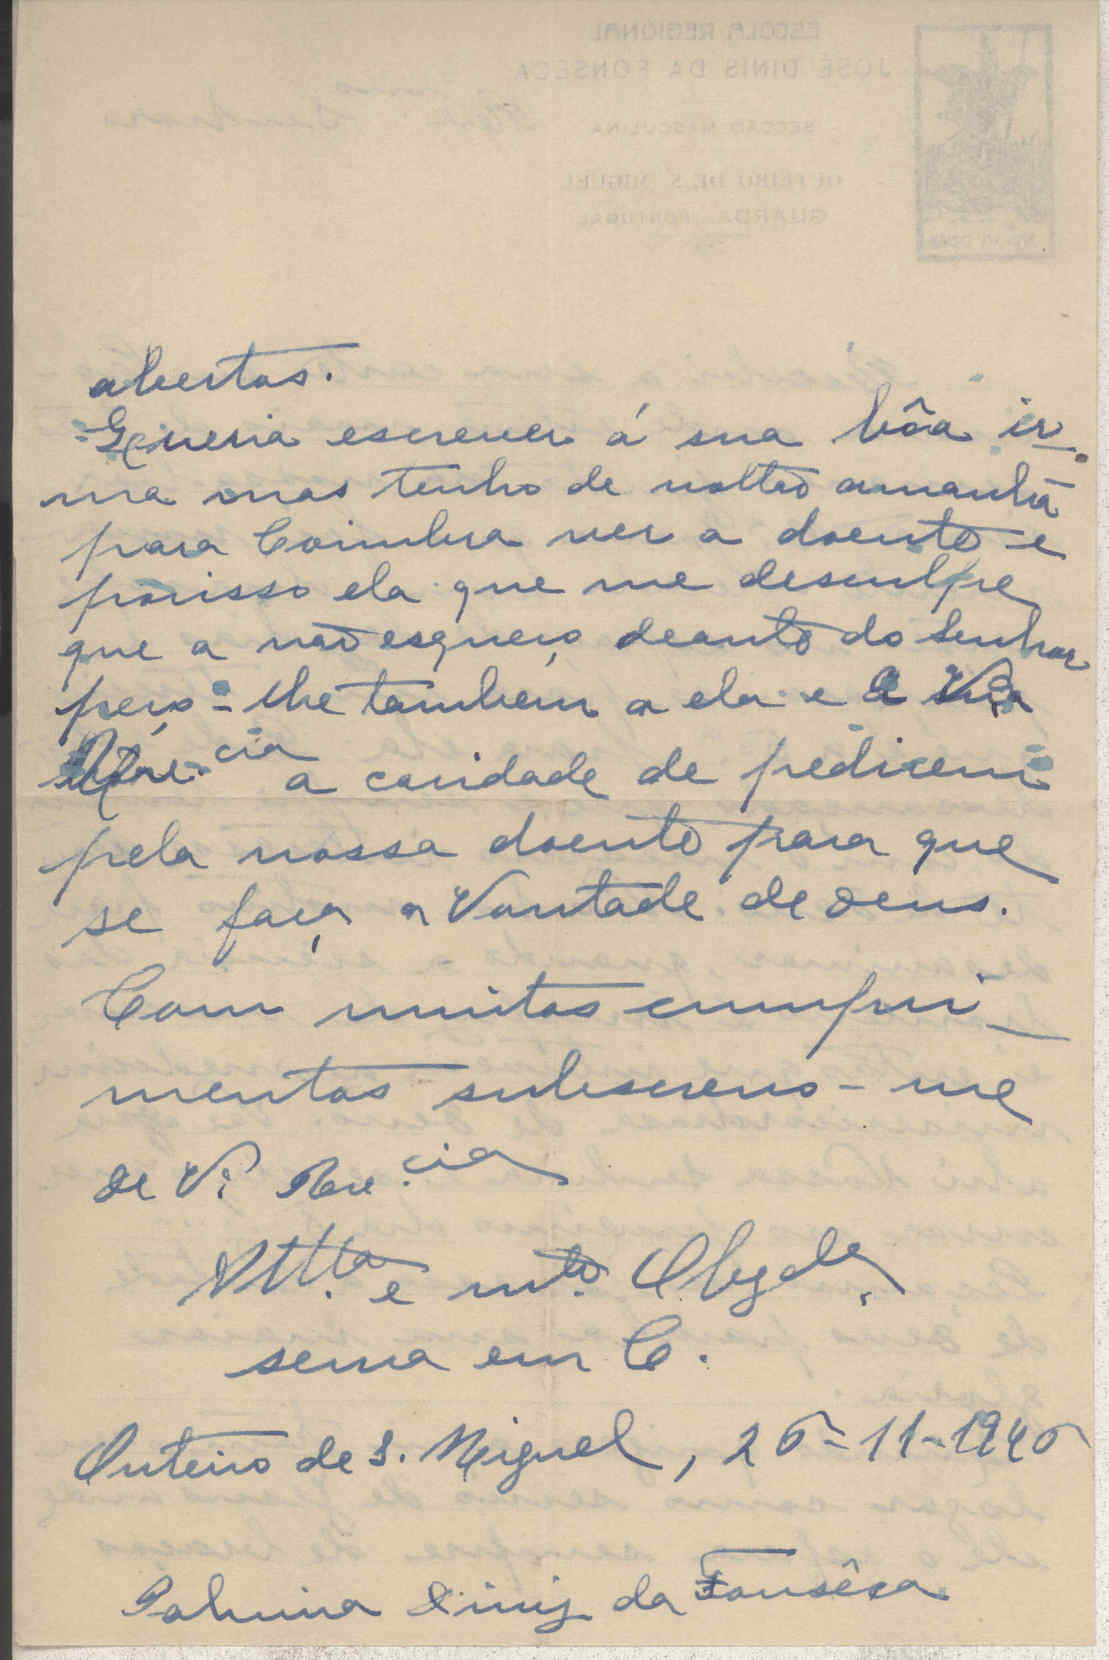 abertos.
Queria escrever á sua bôa ir-
ma mas tenho de voltar amanhã
para Coimbra ver a doente e
porisso ela que me desculpe
que a não esqueço deante do Senhor
peço-lhe tambem a ela e a V.
Rev.cia a caridade de pedirem
pela nossa doente para que
se faça a Vontade de Deus.
Com muitos cumpri-
mentos subscrevo-me
de V. Rev.cia
Att.ta e mto. Obgda.
serva em C.
Outeiro de S. Miguel, 26-11-1946
Diniz da Fonsêca